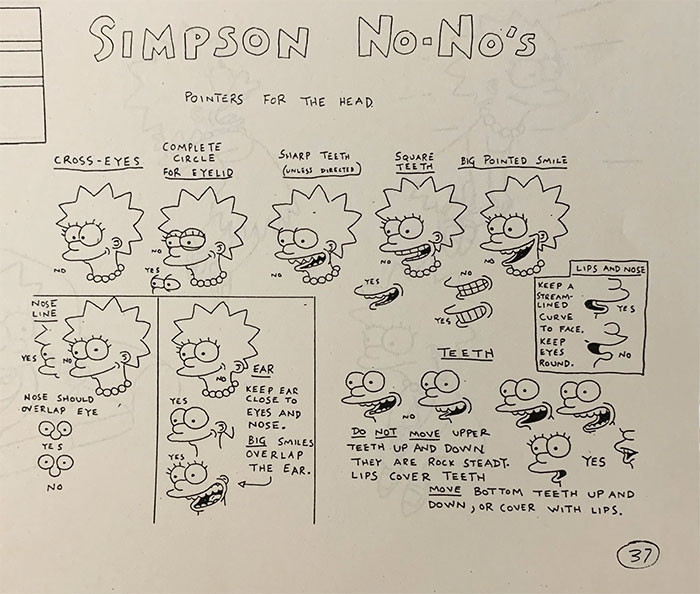 SIMPSON NO-NO'S
POINTERS FOR THE HEAD.
CROSS-EYES
NO
COMPLETE
CIRCLE
FOR EYELID
NO
YES
SHARP TEETH
(UNLESS DIRECTED)
NO
SQUARE
TEETH
NO
YES
BIG POINTED SMILE
NO
NO
YES
LIPS AND NOSE
KEEP A
STREAM-
LINED
CURVE
TO FACE.
KEEP
EYES
ROUND.
YES
NO
NOSE
LINE
YES
NO
NOSE SHOULD
OVERLAP EYE
YES
NO
NO
EAR
YES
KEEP EAR
CLOSE TO
EYES AND
NOSE.
YES
BIG SMILES
OVERLAP
THE EAR.
TEETH
NO
DO NOT MOVE UPPER
TEETH UP AND DOWN
THEY ARE ROCK STEADY.
LIPS COVER TEETH
YES
MOVE BOTTOM TEETH UP AND
DOWN, OR COVER WITH LIPS.
37